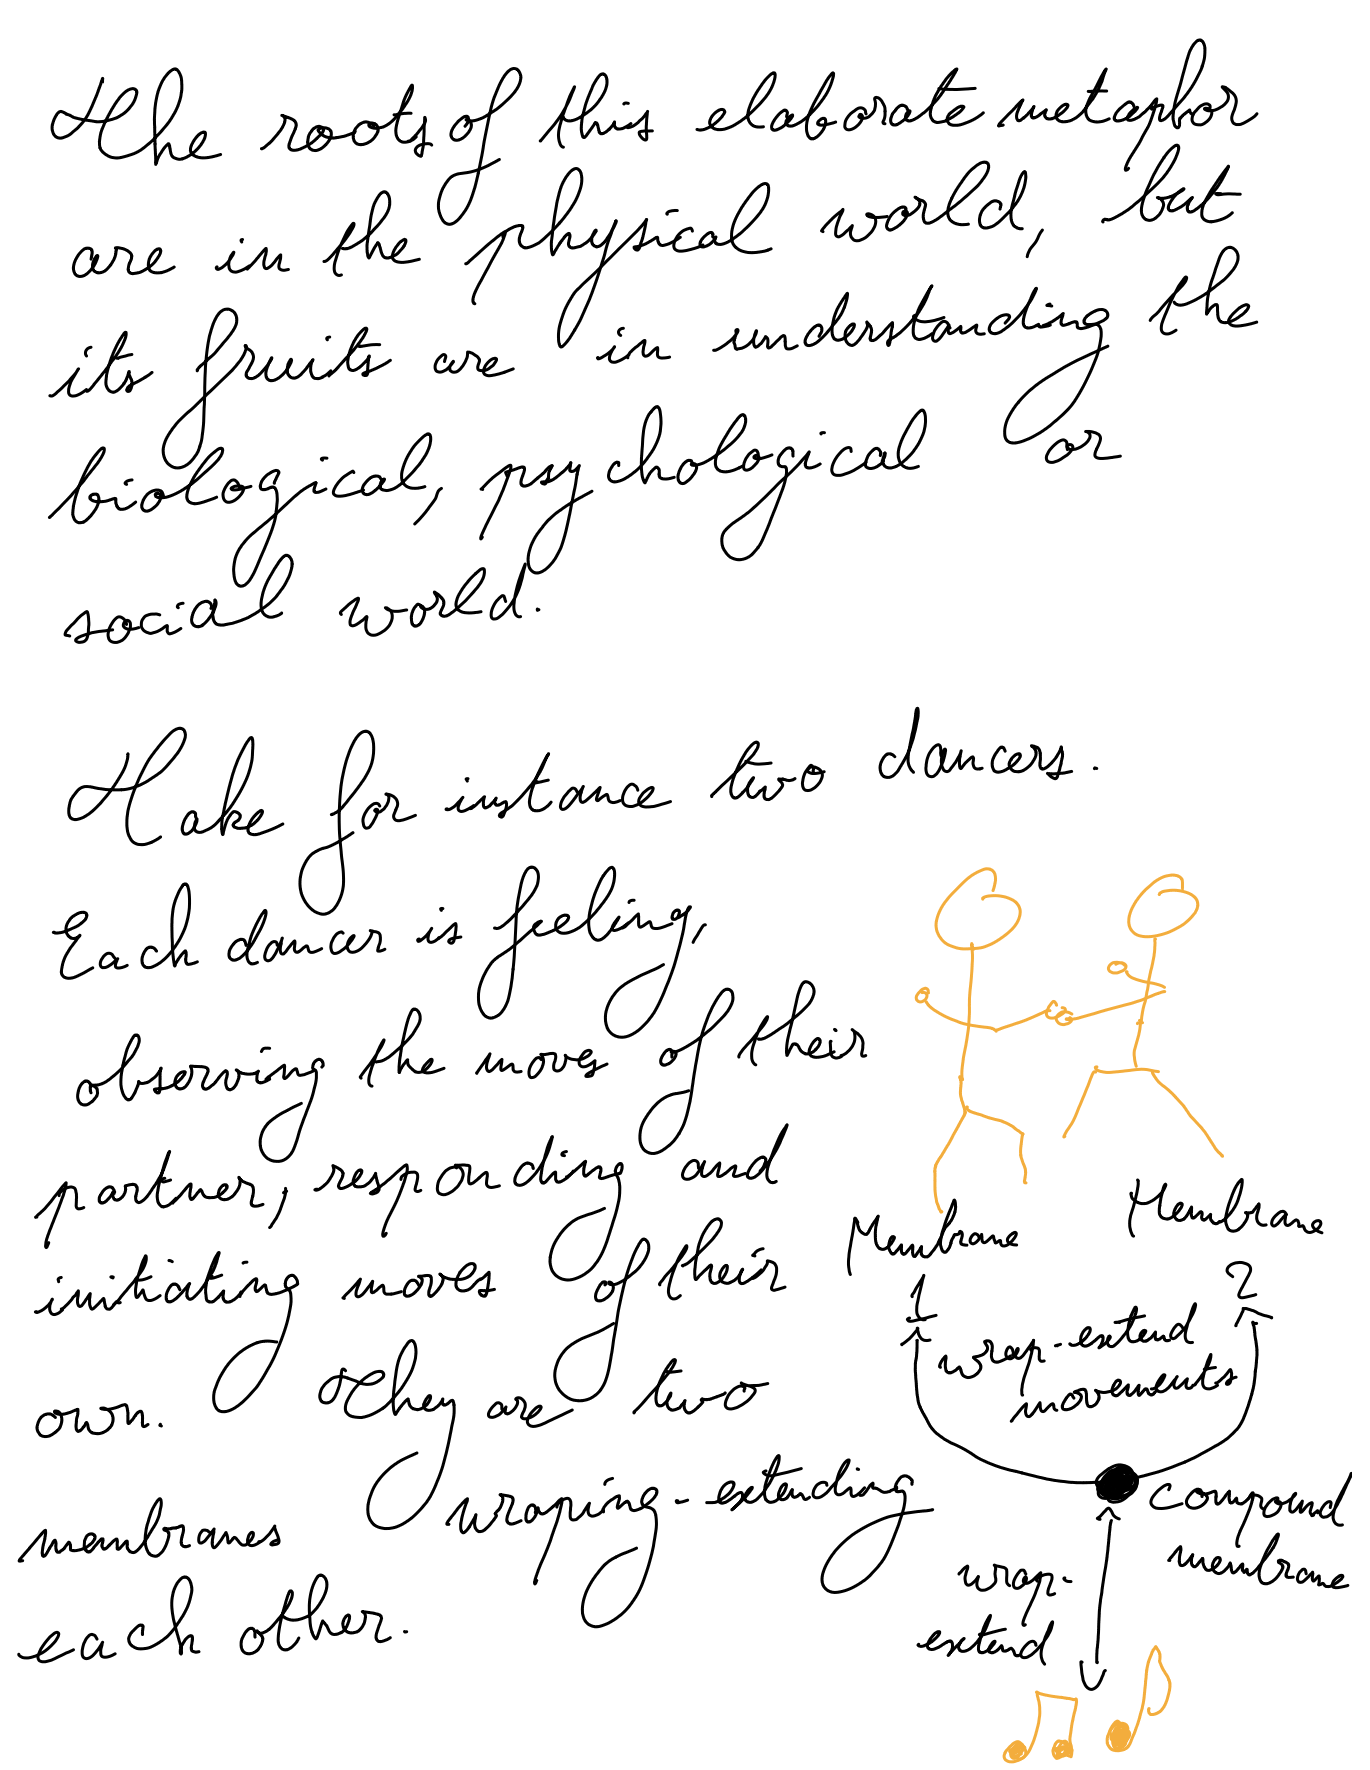 The roots of this elaborate metaphor
are in the physical world, but
its fruits are in understanding the
biological, psychological or
social world.
Take for instance two dancers.
Each dancer is feeling,
observing the moves of their
partner, responding and
initiating moves of their
own. They are two
membranes wraping-extending
each other.
Membrane
1
Membrane
2
wrap-extend
movements
compound
membrane
wrap-
extend